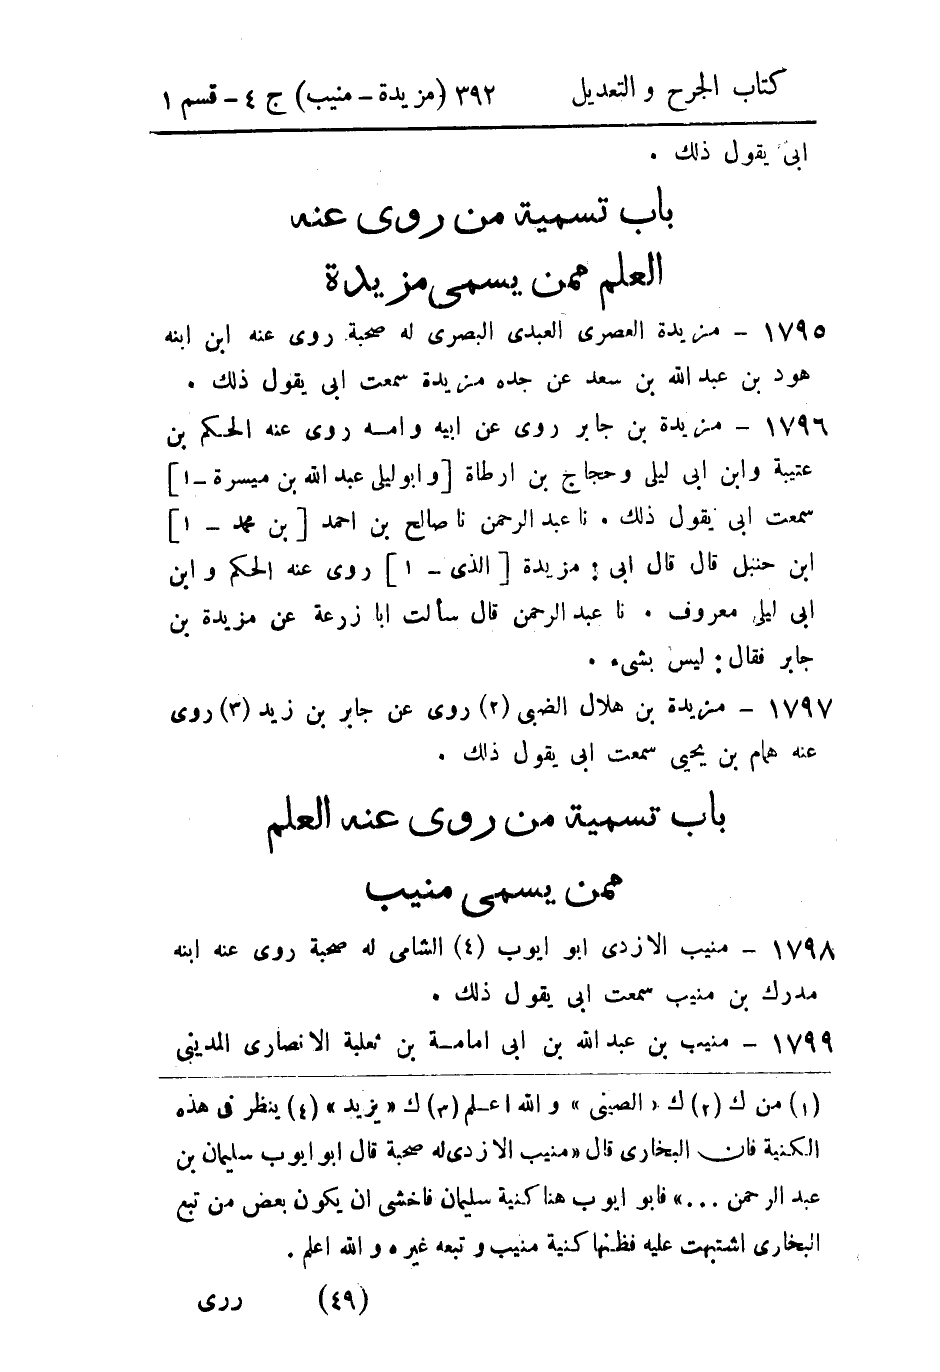 كتاب الجرح و التعديل ٣٩٢ (مزيدة – منيب) ج ٤ – قسم ١
ابى يقول ذلك .
باب تسمية من روى عنه
العلم ممن يسمى مزيدة
١٧٩٥ – مزيدة العصرى العبدى البصرى له صحبة روى عنه ابن ابنه
هود بن عبد الله بن سعد عن جده مزيدة سمعت ابى يقول ذلك .
١٧٩٦ – مزيدة بن جابر روى عن ابيه وامه روى عنه الحكم بن
عتيبة وابن ابى ليلى وحجاج بن ارطاة [وابوليلى عبد الله بن ميسرة – ١]
سمعت ابى يقول ذلك . نا عبد الرحمن نا صالح بن احمد [بن محمد – ١]
ابن حنبل قال قال ابى : مزيدة [الذى – ١] روى عنه الحكم و ابن
ابى ليلى معروف . نا عبد الرحمن قال سألت ابا زرعة عن مزيدة بن
جابر فقال : ليس بشىء .
١٧٩٧ – مزيدة بن هلال الضبى (٢) روى عن جابر بن زيد (٣) روى
عنه همام بن يحيى سمعت ابى يقول ذلك .
باب تسمية من روى عنه العلم
ممن يسمى منيب
١٧٩٨ – منيب الازدى ابو ايوب (٤) الشامى له صحبة روى عنه ابنه
مدرك بن منيب سمعت ابى يقول ذلك .
١٧٩٩ – منيب بن عبد الله بن ابى امامة بن ثعلبة الانصارى المدينى
(١) من ك (٢) ك « الصينى » و الله اعلم (٣) ك « يزيد » (٤) ينظر فى هذه
الكنية فان البخارى قال « منيب الازدى له صحبة قال ابو ايوب سليمان بن
عبد الرحمن ... » فابو ايوب هنا كنية سليمان فاخشى ان يكون بعض من تبع
البخارى اشتبهت عليه فظنها كنية منيب و تبعه غيره و الله اعلم .
(٤٩) ررى